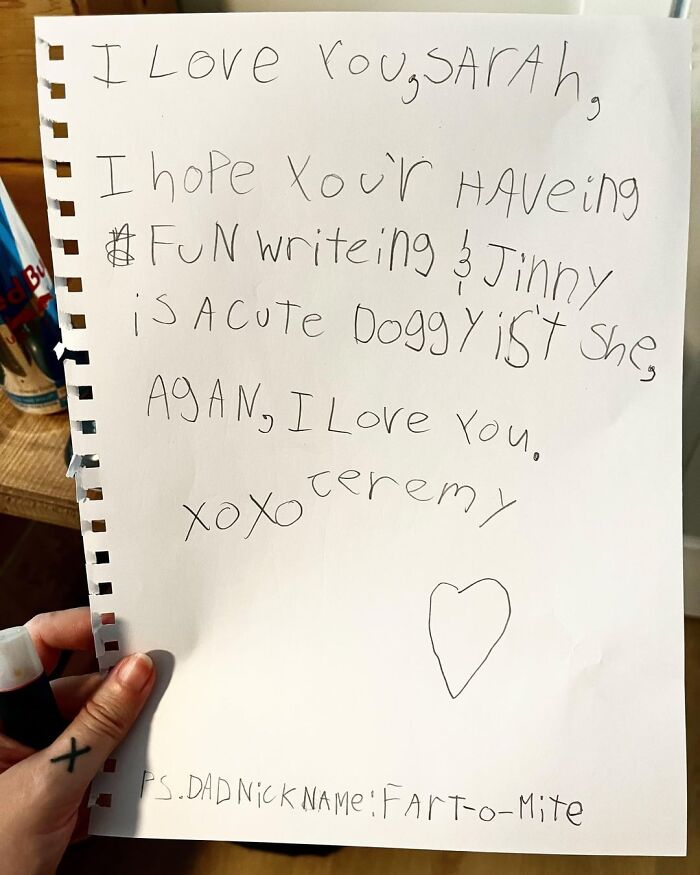 I Love You, SArAh,
I hoPe You'r HAVeing
FuN writeing & Jinny
is A CuTe DoggY iS't She,
AgAN, I Love You.
XOXO Jeremy
PS. DAD NiCKNAMe: FArT-o-MiTe